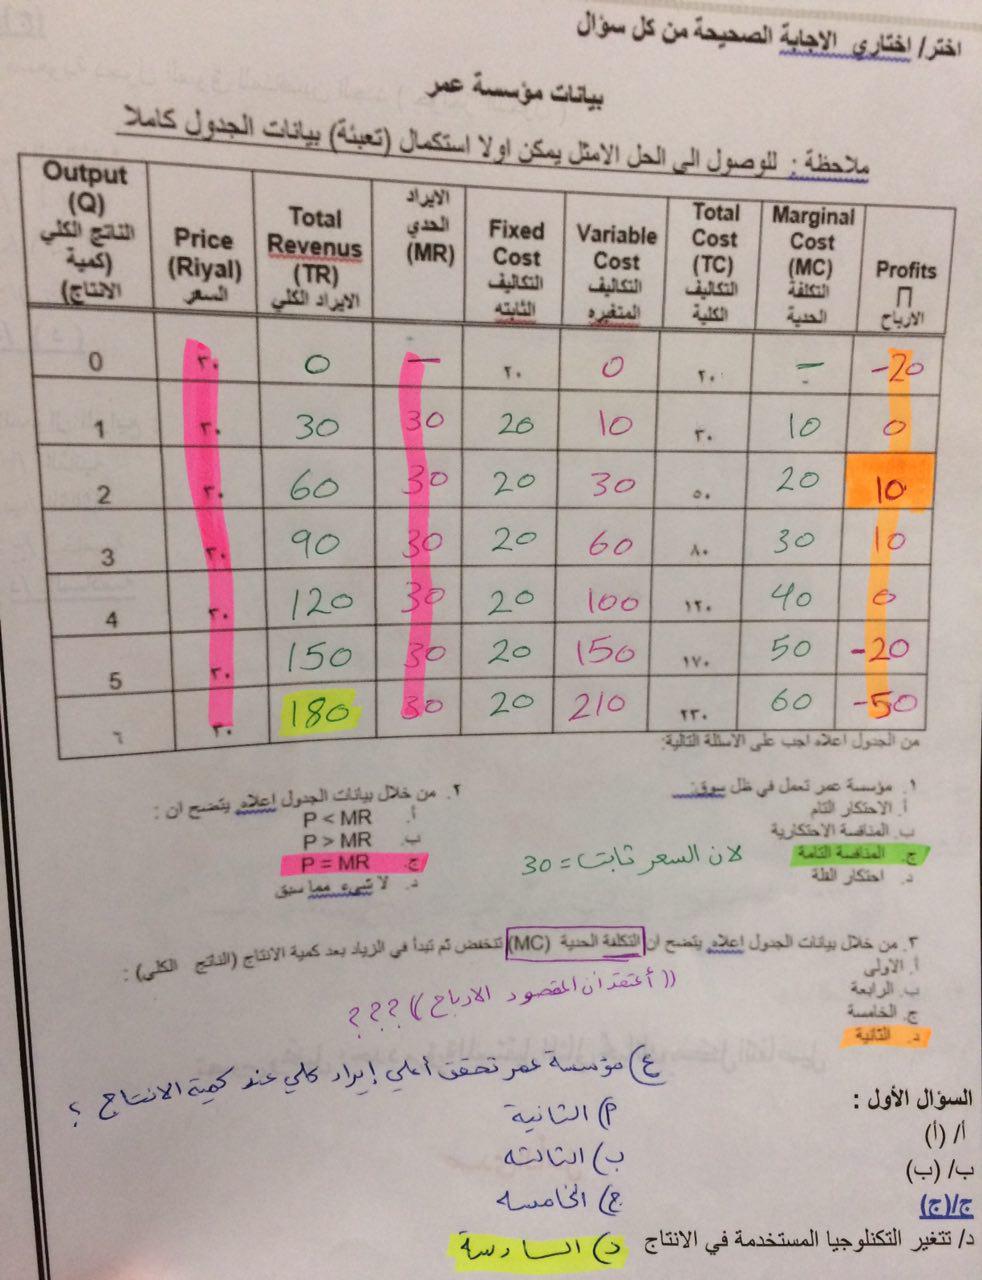 اختر/ اختاري الاجابة الصحيحة من كل سؤال
بيانات مؤسسة عمر
ملاحظة : للوصول الى الحل الامثل يمكن اولا استكمال (تعبئة) بيانات الجدول كاملا
Output (Q) الناتج الكلي (كمية الانتاج) | Price (Riyal) السعر | Total Revenus (TR) الايراد الكلي | الايراد الحدي (MR) | Fixed Cost التكاليف الثابته | Variable Cost التكاليف المتغيره | Total Cost (TC) التكاليف الكلية | Marginal Cost (MC) التكلفة الحدية | Profits Π الارباح
0 | ٣٠ | 0 | – | ٢٠ | 0 | ٢٠ | – | -20
1 | ٣٠ | 30 | 30 | 20 | 10 | ٣٠ | 10 | 0
2 | ٣٠ | 60 | 30 | 20 | 30 | ٥٠ | 20 | 10
3 | ٣٠ | 90 | 30 | 20 | 60 | ٨٠ | 30 | 10
4 | ٣٠ | 120 | 30 | 20 | 100 | ١٢٠ | 40 | 0
5 | ٣٠ | 150 | 30 | 20 | 150 | ١٧٠ | 50 | -20
٦ | ٣٠ | 180 | 30 | 20 | 210 | ٢٣٠ | 60 | -50
من الجدول اعلاه اجب على الاسئلة التالية:
١. مؤسسة عمر تعمل في ظل سوق:
أ. الاحتكار التام
ب. المنافسة الاحتكارية
ج. المنافسة التامة
لان السعر ثابت = 30
د. احتكار القلة
٢. من خلال بيانات الجدول اعلاه يتضح ان :
أ. P < MR
ب. P > MR
ج. P = MR
د. لا شيء مما سبق
٣. من خلال بيانات الجدول اعلاه يتضح ان التكلفة الحدية (MC) تنخفض ثم تبدأ في الزياد بعد كمية الانتاج (الناتج الكلي) :
أ. الاولى
ب. الرابعة
ج. الخامسة
د. الثانية
((أعتقد ان المقصود الارباح)) ???
٤) مؤسسة عمر تحقق أعلى إيراد كلي عند كمية الانتاج ؟
أ) الثانية
ب) الثالثه
ج) الخامسه
د) السادسة
السؤال الأول :
أ/ (أ)
ب/ (ب)
ج/(ج)
د/ تتغير التكنلوجيا المستخدمة في الانتاج